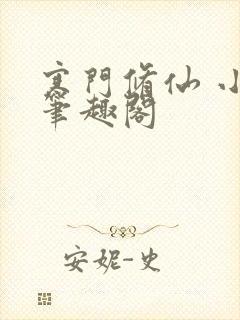 寒門脩仙 小
筆趣閣
安妮-史